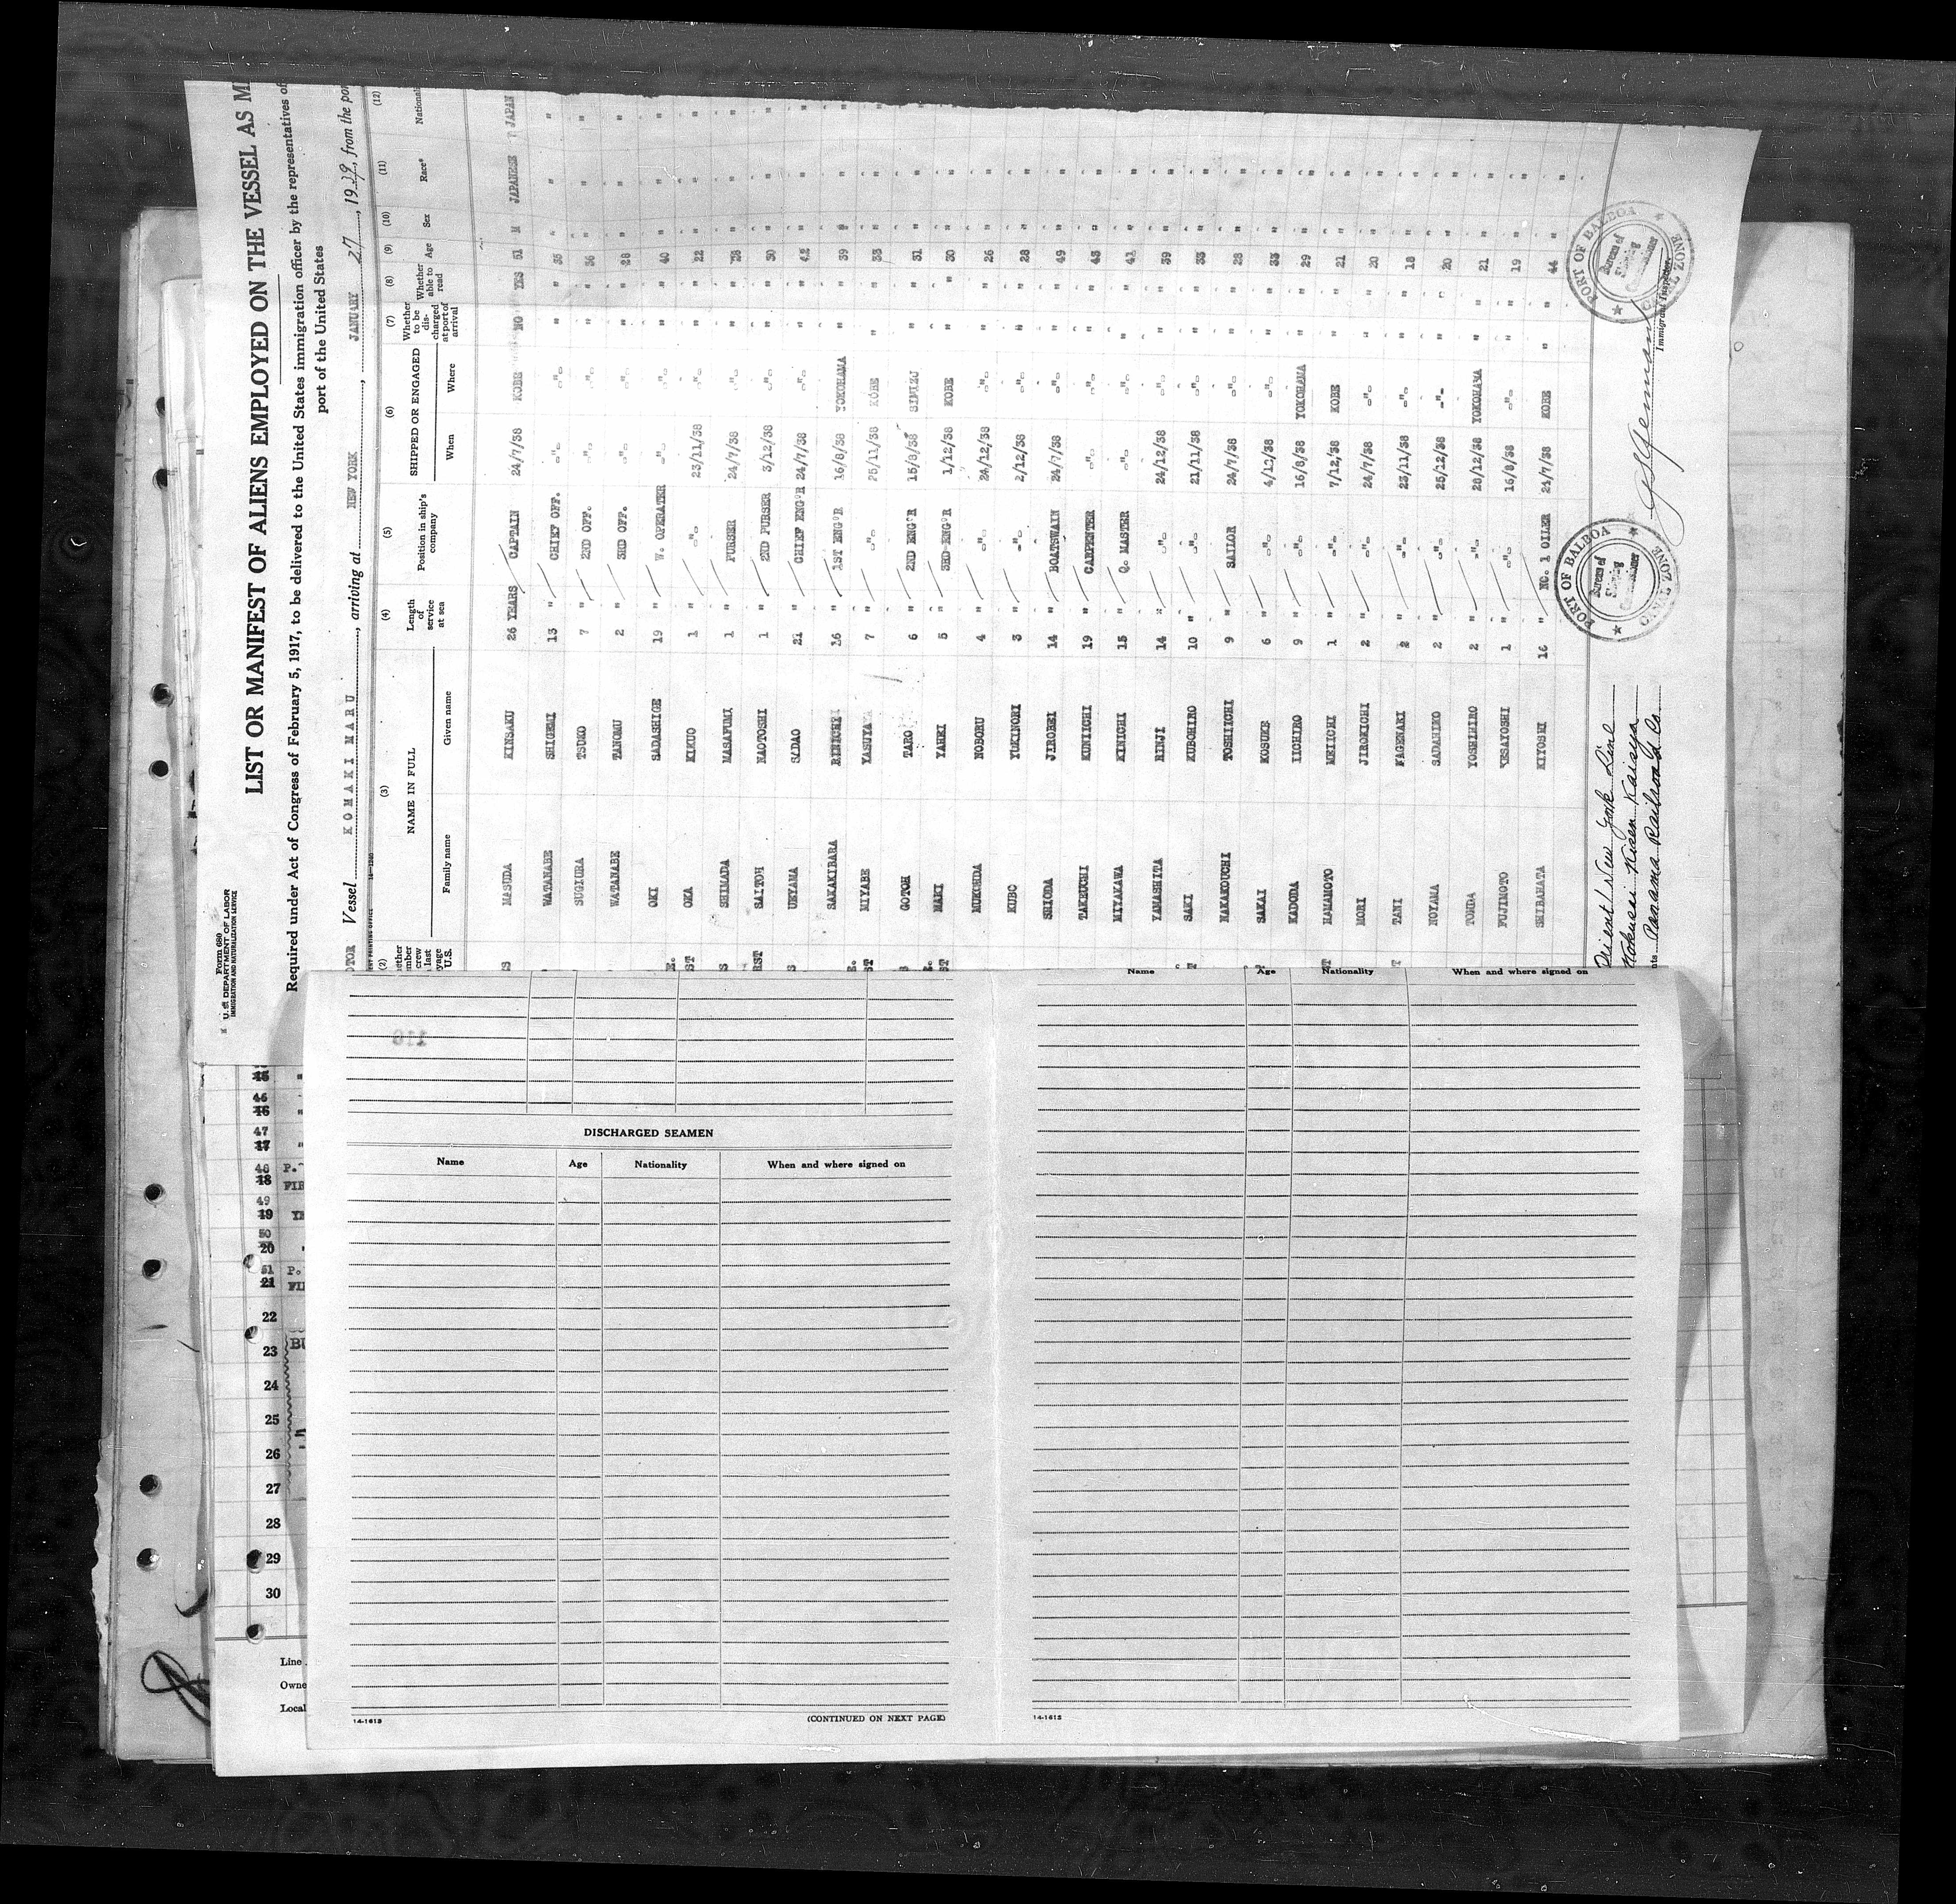 Form 680
U. S. DEPARTMENT OF LABOR
IMMIGRATION AND NATURALIZATION SERVICE
LIST OR MANIFEST OF ALIENS EMPLOYED ON THE VESSEL AS M
Required under Act of Congress of February 5, 1917, to be delivered to the United States immigration officer by the representatives of
port of the United States
Vessel KOMAKI MARU, arriving at NEW YORK, JANUARY 27, 1939, from the por
(2) (3) (4) (5) (6) (7) (8) (9) (10) (11) (12)
NAME IN FULL
Family name Given name
Length of service at sea
Position in ship's company
SHIPPED OR ENGAGED
When Where
Whether to be discharged at port of arrival
Whether able to read
Age Sex Race* National
MASUDA KINSAKU 26 YEARS CAPTAIN 24/7/38 KOBE NO YES 51 M JAPANESE JAPAN
WATANABE SHIGEMI 13 " CHIEF OFF. -"- " " 35 " " "
SUGIURA 7 " 2ND OFF. -"- " " 36 " " "
WATANABE TANOMU 2 " 3RD OFF. -"- " " 28 " " "
OKI SADASHIGE 19 " W. OPERATER -"- " " 40 " " "
OKA KIKUO 1 " -"- 23/11/38 -"- " " 22 " " "
SHIMADA MASAFUMI 1 " PURSER 24/7/38 -"- " " 28 " " "
SAITOH NAOTOSHI 1 " 2ND PURSER 3/12/38 -"- " " 30 " " "
UEYAMA SADAO 21 " CHIEF ENG'R 24/7/38 -"- " " 42 " " "
SAKAKIBARA 16 " 1ST ENG'R 16/8/38 YOKOHAMA " " 39 " " "
MIYABE 7 " -"- 25/11/38 KOBE " " 33 " " "
GOTOH TARO 6 " 2ND ENG'R 15/8/38 SIMIZU " " 31 " " "
MAKI YAHEI 5 " 3RD ENG'R 1/12/38 KOBE " " 30 " " "
NOBORU 4 " -"- 24/12/38 -"- " " 26 " " "
KUBO YUKINORI 3 " -"- 2/12/38 -"- " " 28 " " "
SHIODA JIROBEI 14 " BOATSWAIN 24/7/38 -"- " " 49 " " "
TAKEUCHI KUNIICHI 19 " CARPENTER -"- -"- " " 43 " " "
MIYAKAWA KINICHI 15 " Q. MASTER -"- -"- " " 41 " " "
YAMASHITA RINJI 14 " -"- 24/12/38 -"- " " 39 " " "
SAKI KUBOHIRO 10 " -"- 21/11/38 -"- " " 33 " " "
NAKAKOUCHI TOSHIICHI 9 " SAILOR 24/7/38 -"- " " 28 " " "
SAKAI KOSUKE 6 " -"- 4/12/38 -"- " " 33 " " "
KADODA IICHIRO 9 " -"- 16/8/38 YOKOHAMA " " 29 " " "
HAMAMOTO MEIICHI 1 " -"- 7/12/38 KOBE " " 21 " " "
MORI JIROKICHI 2 " -"- 24/7/38 -"- " " 20 " " "
TANI 2 " -"- 23/11/38 -"- " " 18 " " "
NOYAMA SADAHIKO 2 " -"- 25/12/38 -"- " " 20 " " "
YOSHIHIRO 2 " -"- 28/12/38 YOKOHAMA " " 21 " " "
FUJIMOTO 1 " -"- 16/8/38 -"- " " 19 " " "
SHIBAHATA KIYOSHI 16 " NO. 1 OILER 24/7/38 KOBE " " 44 " " "
Orient / New York Line
Kokusai Kisen Kaisya
Panama Railroad Co.
PORT OF BALBOA
Bureau of Shipping Commissioner
CANAL ZONE
PORT OF BALBOA
Bureau of Shipping Commissioner
CANAL ZONE
Immigrant Inspector.
46
16
47
17
48 P.
18 FIR
49
19
50
20
51 P.
21
22
23
24
25
26
27
28
29
30
Line
Owne
Local
110
DISCHARGED SEAMEN
Name Age Nationality When and where signed on
14-1613
(CONTINUED ON NEXT PAGE)
Name Age Nationality When and where signed on
14-1613